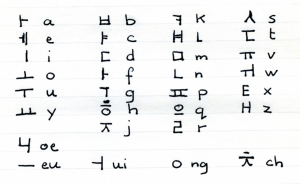 ㅏ a ㅂ b ㅋ k ㅅ s
ㅔ e ㅑ c ㅐ L ㄷ t
ㅣ i ㄷ d ㅁ m ㅠ v
ㅗ o ㅏ f ㄴ n ㅝ w
ㅜ u g ㅍ p E x
ㅛ y ㅎ h q H z
ㅈ j ㄹ r
ㅕ oe
ㅡ eu ㅓ ui ㅇ ng ㅊ ch